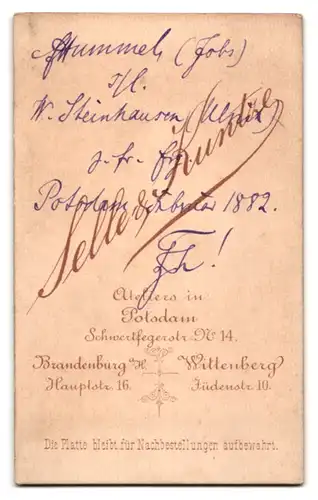 Hummel, (Jobs)
s/l.
W. Steinhausen
Selle & Kuntze
Potsdam Februar 1882.
Ateliers in
Potsdam
Schwertfegerstr. No 14.
Brandenburg a/H. Wittenberg
Hauptstr. 16. Jüdenstr. 10.
Die Platte bleibt für Nachbestellungen aufbewahrt.